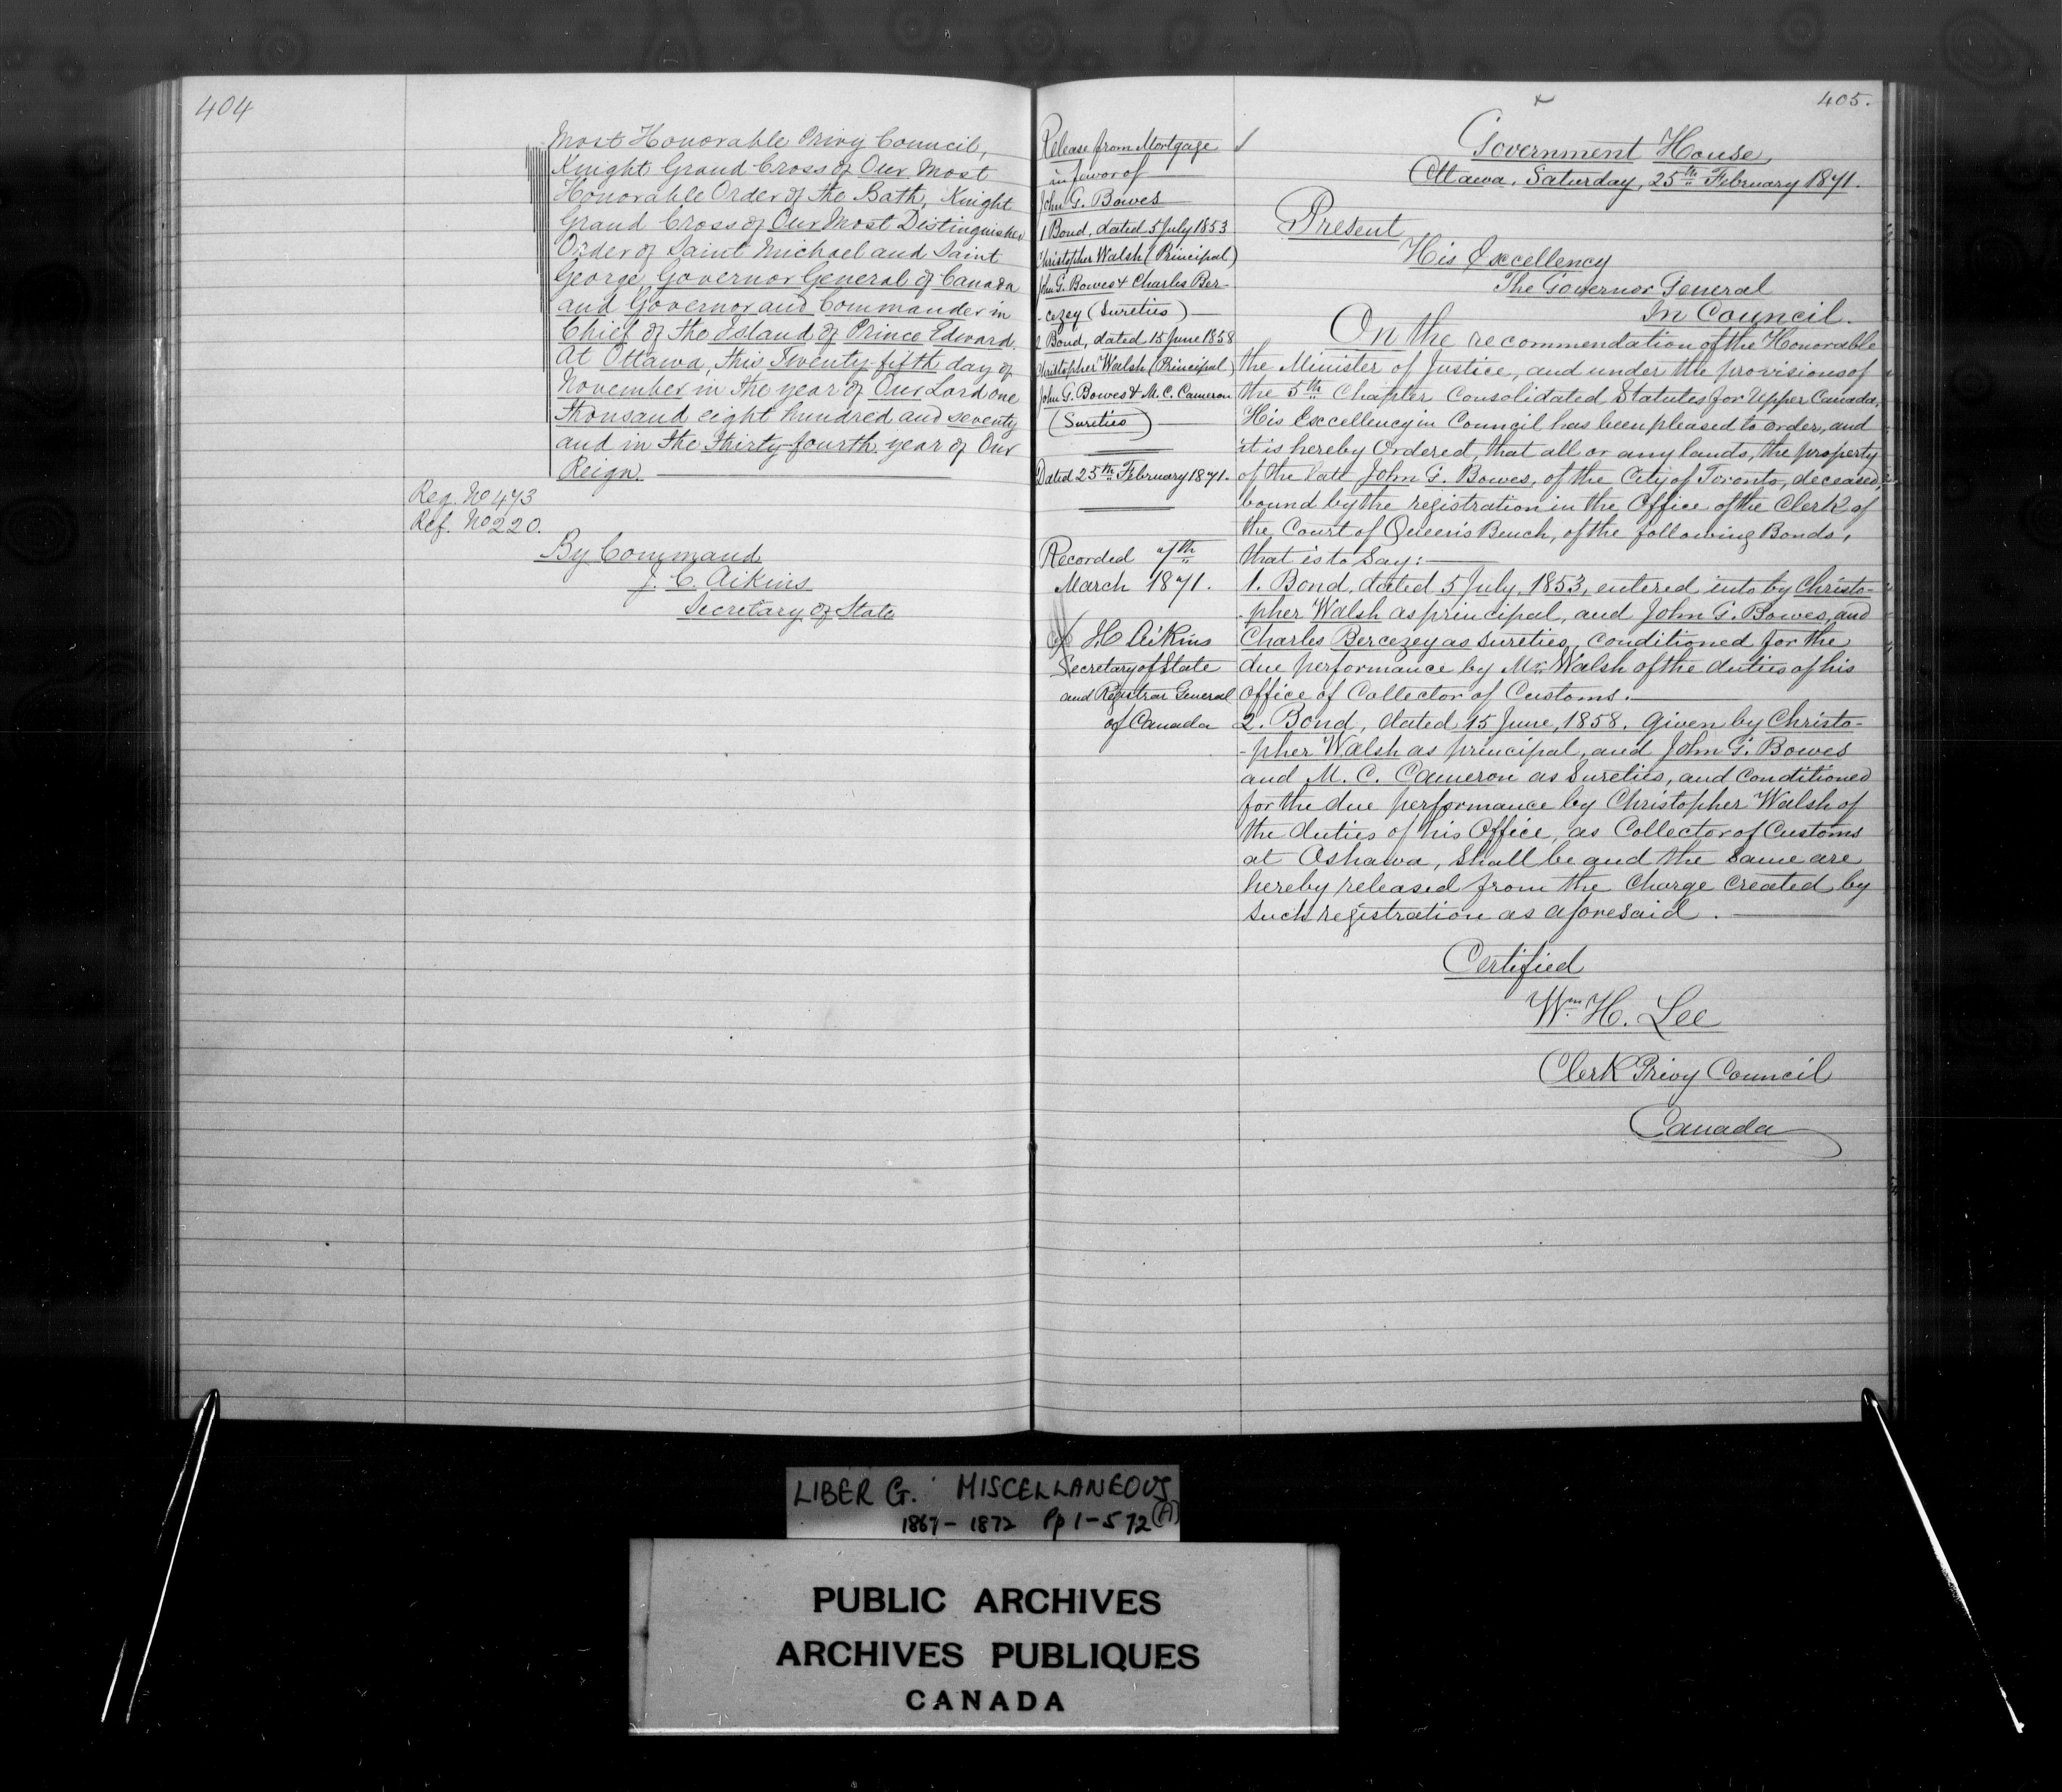 404
Most Honorable Privy Council,
Knight Grand Cross of Our Most
Honorable Order of the Bath, Knight
Grand Cross of Our Most Distinguished
Order of Saint Michael and Saint
George, Governor General of Canada
and Governor and Commander in
Chief of the Island of Prince Edward.
At Ottawa, this Twenty-fifth day of
November in the year of Our Lord one
thousand eight hundred and seventy
and in the Thirty-fourth year of Our
Reign.
Reg. No 473
Ref. No 220.
By Command
J. C. Aikins
Secretary of State
405.
Release from Mortgage
in favor of
John G. Bowes
1 Bond, dated 5 July 1853
Christopher Walsh (Principal)
John G. Bowes & Charles Ber-
-cezey (Sureties)
2 Bond, dated 15 June 1858
Christopher Walsh (Principal)
John G. Bowes & M. C. Cameron
(Sureties)
Dated 25th February 1871.
Recorded 7th
March 1871.
H Aikins
Secretary of State
and Registrar General
of Canada
Government House,
Ottawa, Saturday, 25th February 1871.
Present
His Excellency
The Governor General
In Council.
On the recommendation of the Honorable
the Minister of Justice, and under the provisions of
the 5th Chapter Consolidated Statutes for Upper Canada,
His Excellency in Council has been pleased to order, and
it is hereby Ordered, that all or any lands, the property
of the late John G. Bowes, of the City of Toronto, deceased,
bound by the registration in the Office of the Clerk of
the Court of Queen's Bench, of the following Bonds,
that is to say:
1. Bond, dated 5 July, 1853, entered into by Christo-
-pher Walsh as principal, and John G. Bowes, and
Charles Bercezey as Sureties, conditioned for the
due performance by Mr Walsh of the duties of his
Office of Collector of Customs.
2. Bond, dated 15 June, 1858. Given by Christo-
-pher Walsh as principal, and John G. Bowes
and M. C. Cameron as Sureties, and conditioned
for the due performance by Christopher Walsh of
the duties of his Office, as Collector of Customs
at Oshawa, shall be and the same are
hereby released from the Charge created by
such registration as aforesaid.
Certified
Wm H. Lee
Clerk Privy Council
Canada
LIBER G. MISCELLANEOUS
1867-1872 Pp 1-572 (A)
PUBLIC ARCHIVES
ARCHIVES PUBLIQUES
CANADA